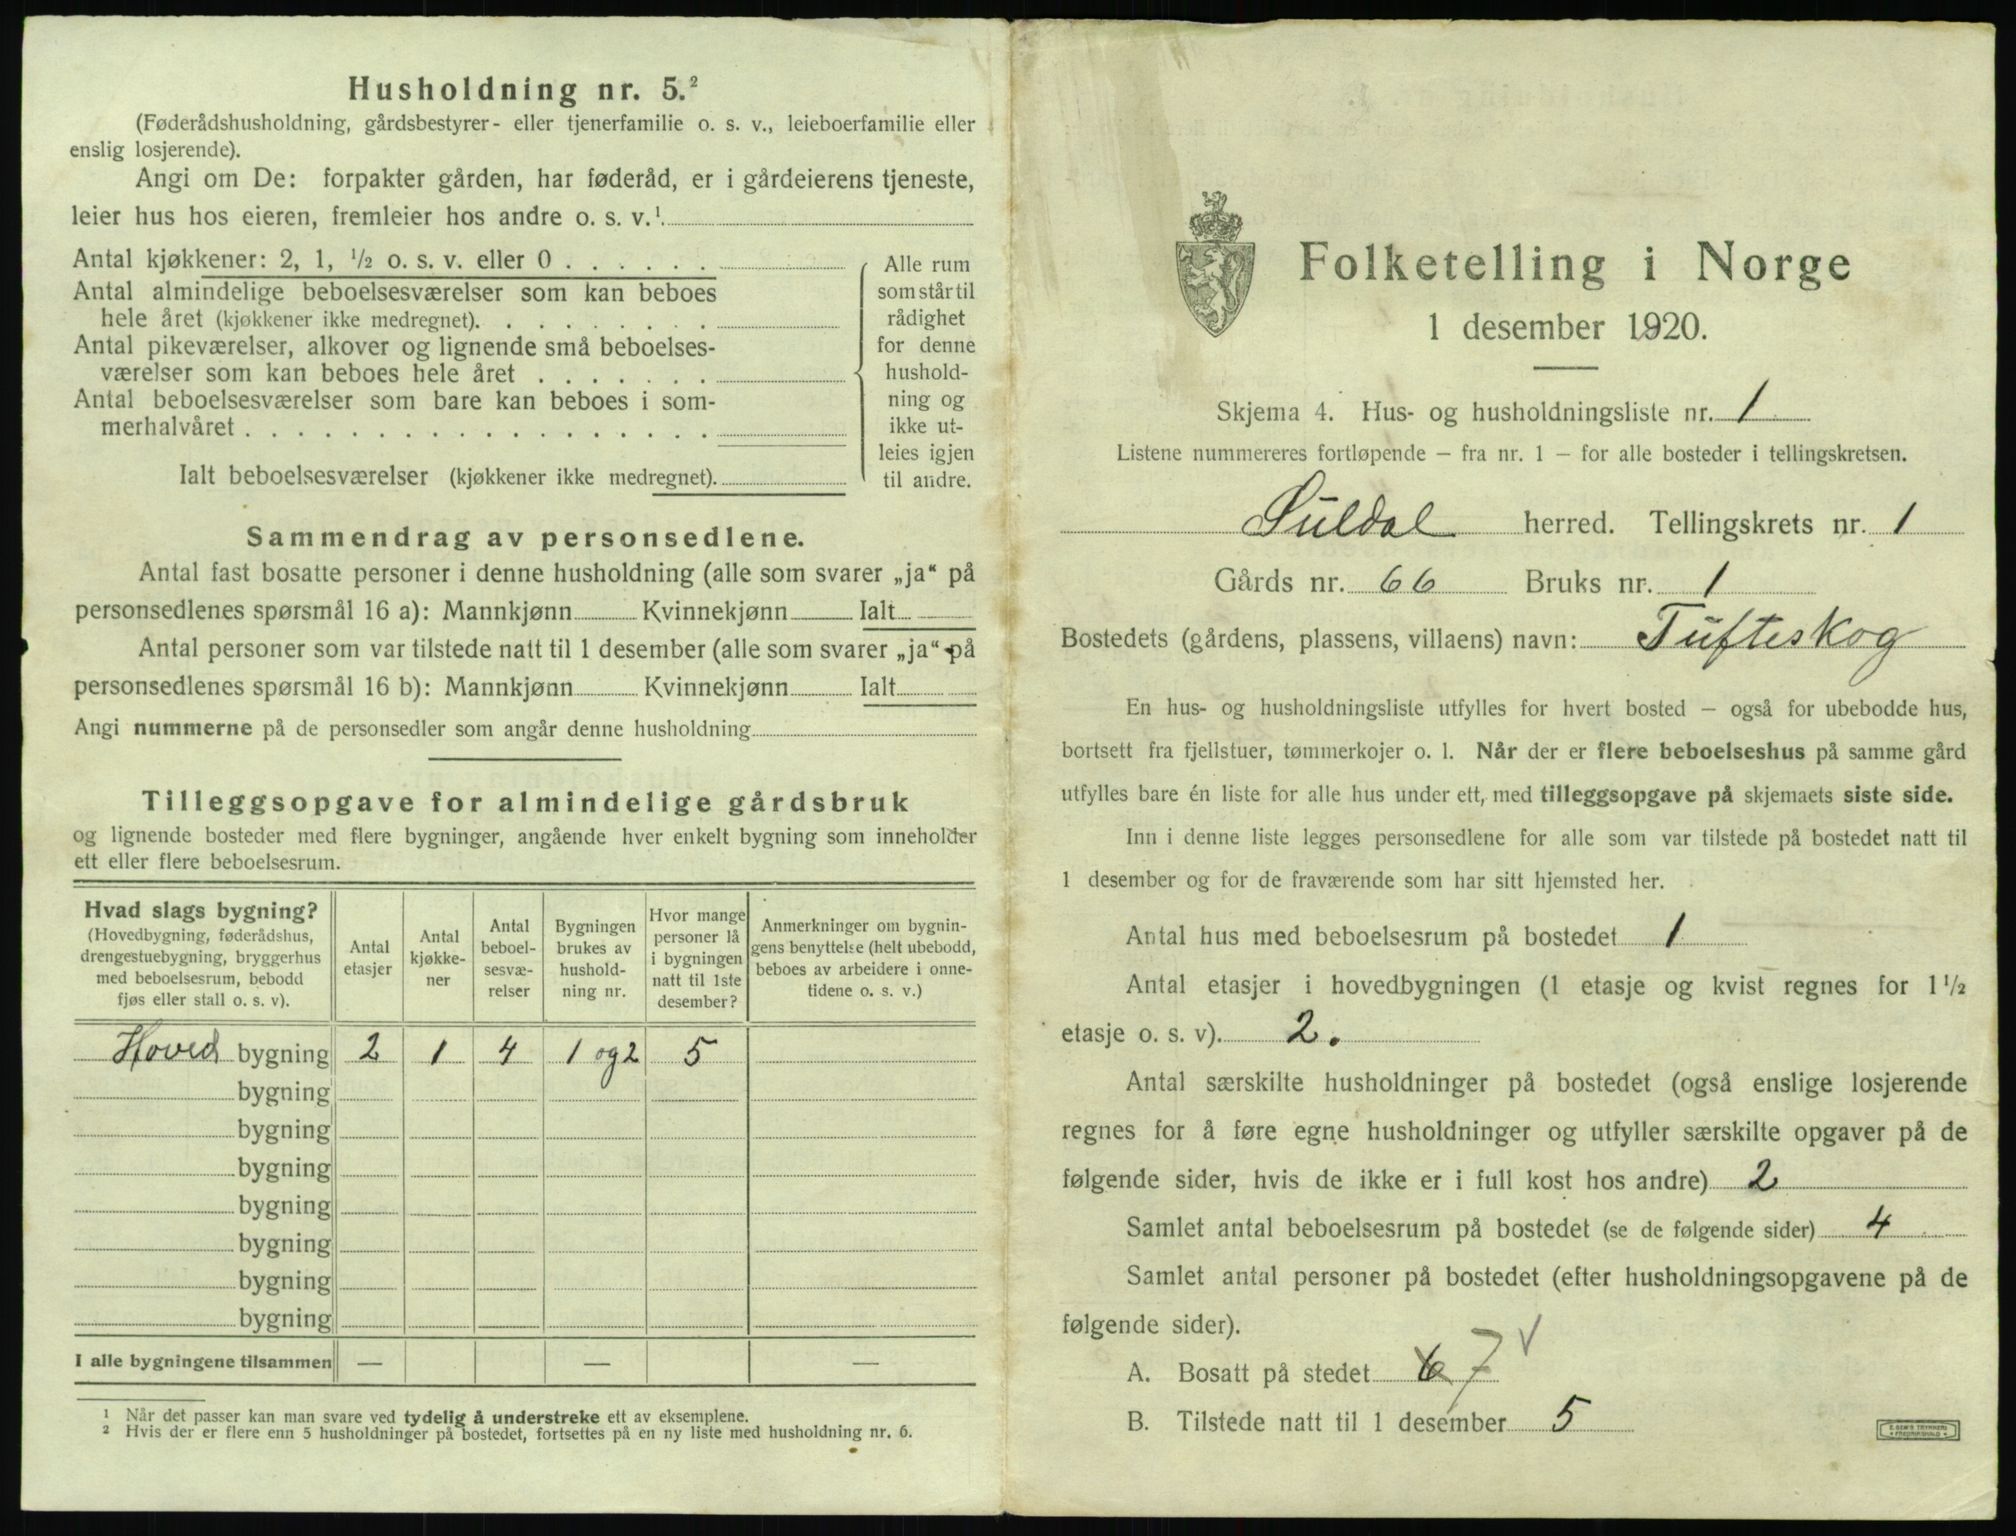 Husholdning nr. 5.²
(Føderådshusholdning, gårdsbestyrer- eller tjenerfamilie o. s. v., leieboerfamilie eller
enslig losjerende).
Angi om De: forpakter gården, har føderåd, er i gårdeierens tjeneste,
leier hus hos eieren, fremleier hos andre o. s. v.¹
Antal kjøkkener: 2, 1, ½ o. s. v. eller 0 . . . . . .
Antal almindelige beboelsesværelser som kan beboes
hele året (kjøkkener ikke medregnet). . . . . . . . .
Antal pikeværelser, alkover og lignende små beboelses-
værelser som kan beboes hele året . . . . . . .
Antal beboelsesværelser som bare kan beboes i som-
merhalvåret . . . . . . . . . . . . . . . . . .
Ialt beboelsesværelser (kjøkkener ikke medregnet).
Alle rum
som står til
rådighet
for denne
hushold-
ning og
ikke ut-
leies igjen
til andre.
Sammendrag av personsedlene.
Antal fast bosatte personer i denne husholdning (alle som svarer „ja“ på
personsedlenes spørsmål 16 a): Mannkjønn Kvinnekjønn Ialt
Antal personer som var tilstede natt til 1 desember (alle som svarer „ja“ på
personsedlenes spørsmål 16 b): Mannkjønn Kvinnekjønn Ialt
Angi nummerne på de personsedler som angår denne husholdning
Tilleggsopgave for almindelige gårdsbruk
og lignende bosteder med flere bygninger, angående hver enkelt bygning som inneholder
ett eller flere beboelsesrum.
Hvad slags bygning?
(Hovedbygning, føderådshus,
drengestuebygning, bryggerhus
med beboelsesrum, bebodd
fjøs eller stall o. s. v).
Antal
etasjer
Antal
kjøkke-
ner
Antal
beboel-
sesvæ-
relser
Bygningen
brukes av
hushold-
ning nr.
Hvor mange
personer lå
i bygningen
natt til 1ste
desember?
Anmerkninger om bygnin-
gens benyttelse (helt ubebodd,
beboes av arbeidere i onne-
tidene o. s. v.)
Hoved bygning 2 1 4 1 og 2 5
bygning
bygning
bygning
bygning
bygning
bygning
bygning
I alle bygningene tilsammen — — —
¹ Når det passer kan man svare ved tydelig å understreke ett av eksemplene.
² Hvis der er flere enn 5 husholdninger på bostedet, fortsettes på en ny liste med husholdning nr. 6.
Folketelling i Norge
1 desember 1920.
Skjema 4. Hus- og husholdningsliste nr. 1
Listene nummereres fortløpende – fra nr. 1 – for alle bosteder i tellingskretsen.
Suldal herred. Tellingskrets nr. 1
Gårds nr. 66 Bruks nr. 1
Bostedets (gårdens, plassens, villaens) navn: Tufteskog
En hus- og husholdningsliste utfylles for hvert bosted – også for ubebodde hus,
bortsett fra fjellstuer, tømmerkojer o. l. Når der er flere beboelseshus på samme gård
utfylles bare én liste for alle hus under ett, med tilleggsopgave på skjemaets siste side.
Inn i denne liste legges personsedlene for alle som var tilstede på bostedet natt til
1 desember og for de fraværende som har sitt hjemsted her.
Antal hus med beboelsesrum på bostedet 1
Antal etasjer i hovedbygningen (1 etasje og kvist regnes for 1 ½
etasje o. s. v). 2.
Antal særskilte husholdninger på bostedet (også enslige losjerende
regnes for å føre egne husholdninger og utfyller særskilte opgaver på de
følgende sider, hvis de ikke er i full kost hos andre) 2
Samlet antal beboelsesrum på bostedet (se de følgende sider) 4
Samlet antal personer på bostedet (efter husholdningsopgavene på de
følgende sider).
A. Bosatt på stedet 6 7 √
B. Tilstede natt til 1 desember 5